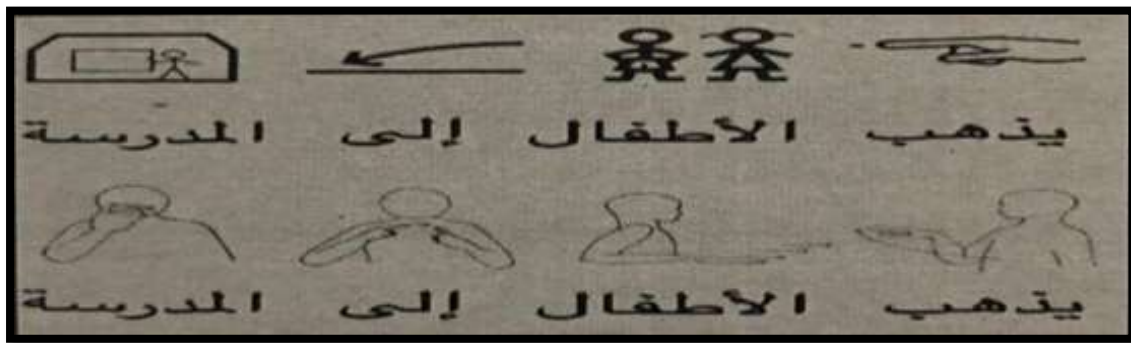 يذهب الأطفال إلى المدرسة
يذهب الأطفال إلى المدرسة